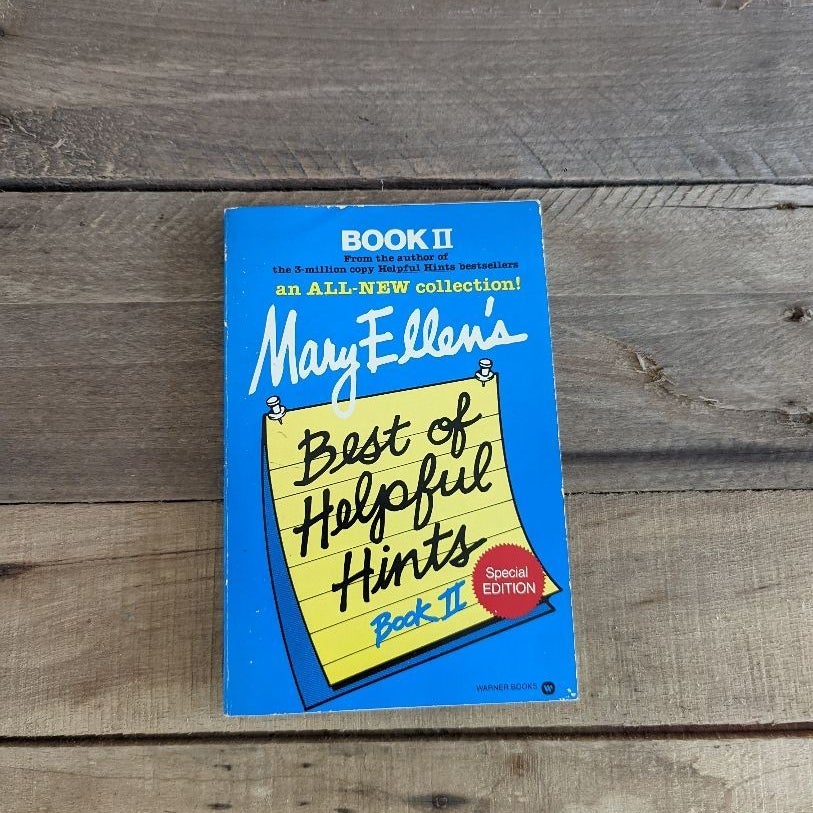 BOOK II
From the author of
the 3-million copy Helpful Hints bestsellers
an ALL-NEW collection!
Mary Ellen's
Best of
Helpful
Hints
Book II
Special
EDITION
WARNER BOOKS W